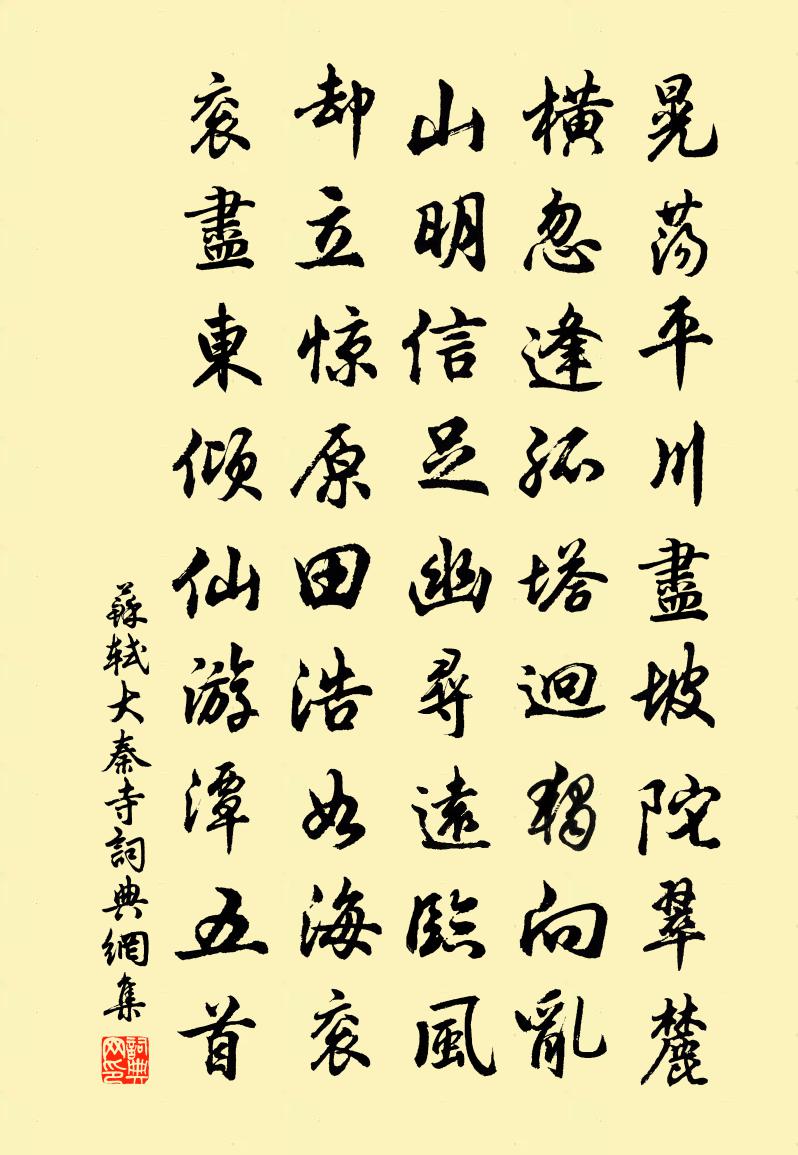 晃蕩平川盡坡陀翠麓
橫忽逢孤塔迥獨向亂
山明信足幽尋遠臨風
却立惊原田浩如海衮
衮盡東傾仙游潭五首
蘇軾大秦寺詞典網集
詞典网印